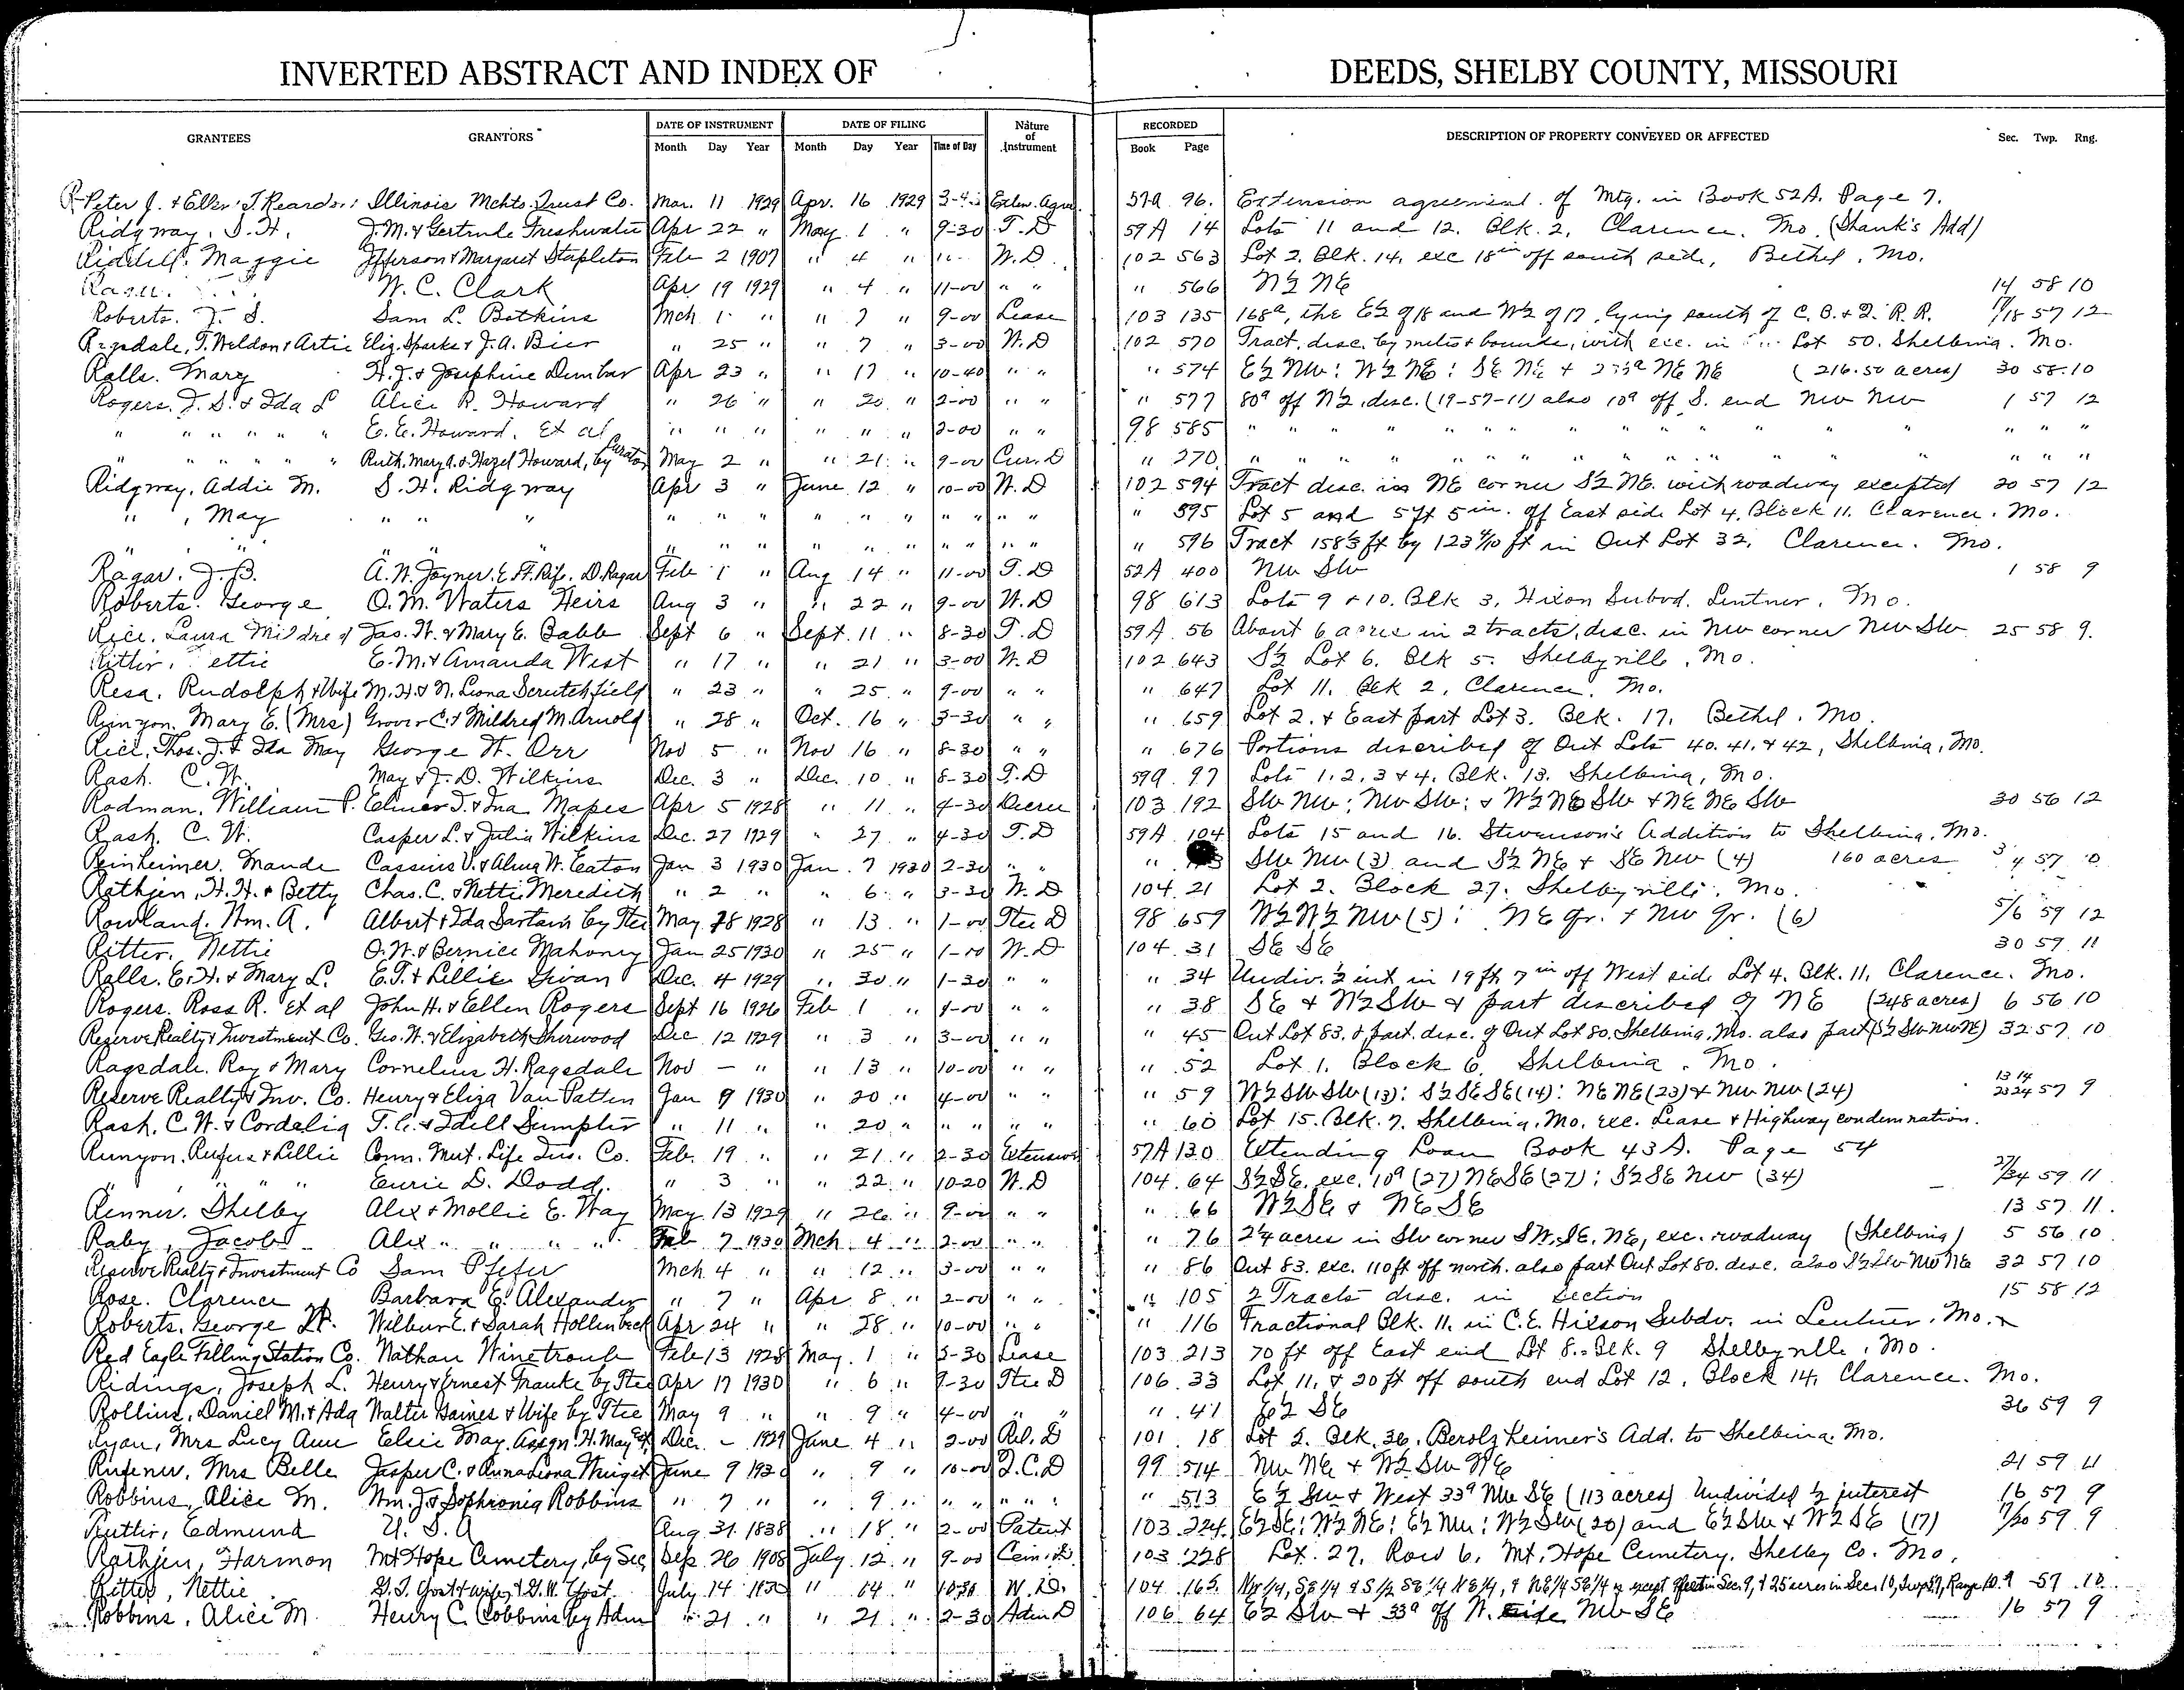 INVERTED ABSTRACT AND INDEX OF DEEDS, SHELBY COUNTY, MISSOURI
GRANTEES GRANTORS DATE OF INSTRUMENT DATE OF FILING Nature of Instrument RECORDED DESCRIPTION OF PROPERTY CONVEYED OR AFFECTED Sec. Twp. Rng.
Month Day Year Month Day Year Time of Day Book Page
Peter J. & Ellen T. Reardon Illinois Mchts. Trust Co. Mar. 11 1929 Apr. 16 1929 Exten. Agre. 57A 96. Extension agreement of Mtg. in Book 52A. Page 7.
Ridgway, S. H. J. M. & Gertrude Freshwater Apr 22 " May 1 " 9-30 T. D 59A 14 Lots 11 and 12. Blk. 2, Clarence. Mo. (Shank's Add)
Riddell. Maggie Jefferson & Margaret Stapleton Feb 2 1907 " 4 " W. D. 102 563 Lot 2. Blk. 14, exc 18in off south side, Bethel, Mo.
W. C. Clark Apr 19 1929 " 4 " 11-00 " " " 566 N½ NE 14 58 10
Roberts. T. S. Sam L. Botkins Mch 1 " " 7 " 9-00 Lease 103 135 168a, the E½ of 18 and W½ of 17, lying south of C. B. & Q. R. R. 17/18 57 12
Ragsdale, T. Weldon & Artie Eliz. Sparks & J. A. Bier " 25 " " 7 " 3-00 W. D 102 570 Tract, desc. by metes & bounds, with exc. in Lot 50. Shelbina. Mo.
Ralls. Mary H. J. & Josephine Dunbar Apr 23 " " 17 " 10-40 " " " 574 E½ NW: W½ NE: SE NE & NE NE (216.50 acres) 30 58 10
Rogers. J. S. & Ida L Alice R. Howard " 26 " " 20 " 2-00 " " " 577 80a off N½, desc. (19-57-11) also 10a off S. end NW NW 1 57 12
" " " " " " E. E. Howard, Et al " " " " " " 2-00 " " 98 585 " " " " " " " " " " " " " " "
" " " " " " Ruth, Mary A. & Hazel Howard, by Curator May 2 " " 21 " 9-00 Cur. D " 270 " " " " " " " " " " " " " " "
Ridgway, Addie M. S. H. Ridgway Apr 3 " June 12 " 10-00 W. D 102 594 Tract desc. in NE corner S½ NE. with roadway excepted 20 57 12
" , May " " " " " " " " " " " " " 595 Lot 5 and 5 ft 5 in. off East side Lot 4, Block 11. Clarence. Mo.
" " " " " " " " " " " " " " " 596 Tract 158⅓ ft by 123 ft in Out Lot 32, Clarence. Mo.
Ragar. J. B. A. W. Joyner. E. H. Rife. D. Ragar Feb 1 " Aug 14 " 11-00 T. D 52A 400 NW SW 1 58 9
Roberts. George O. M. Waters Heirs Aug 3 " " 22 " 9-00 W. D 98 613 Lots 9 & 10. Blk 3, Hixon Subvd. Lentner. Mo.
Rice, Laura Mildred Jas. W. & Mary E. Babb Sept 6 " Sept. 11 " 8-30 T. D 59A. 56 About 6 acres in 2 tracts, desc. in NW corner NW SW 25 58 9.
Ritter, ettie E. M. & Amanda West " 17 " " 21 " 3-00 W. D 102 643 S½ Lot 6. Blk 5. Shelbyville, Mo.
Resa. Rudolph & Wife M. H. & N. Leona Scrutchfield " 23 " " 25 " 9-00 " " " 647 Lot 11. Blk 2, Clarence. Mo.
Runyon. Mary E. (Mrs) Grover C. & Mildred M. Arnold " 28 " Oct. 16 " 3-30 " " " 659 Lot 2. & East part Lot 3. Blk. 17. Bethel. Mo.
Rice, Thos. J. & Ida May George W. Orr Nov 5 " Nov 16 " 8-30 " " " 676 Portions described of Out Lots 40. 41. & 42, Shelbina, Mo.
Rash. C. W. May & J. D. Wilkins Dec. 3 " Dec. 10 " 8-30 T. D 59A 97 Lots 1, 2, 3 & 4. Blk. 13. Shelbina, Mo.
Rodman, William P. Elmer T. & Ina Mapes Apr 5 1928 " 11 " 4-30 Decree 103 192 SW NW; NW SW; & W½ NE SW & NE NE SW 30 56 12
Rash. C. W. Casper L. & Julia Wilkins Dec. 27 1929 " 27 " 4-30 T. D 59A 104 Lots 15 and 16. Stevenson's Addition to Shelbina. Mo.
Reinheimer. Maude Cassius V. & Alma W. Eaton Jan 3 1930 Jan. 7 1930 2-30 " " " SW NW (3) and S½ NE & SE NW (4) 160 acres 3/4 57
Rathjen, H. H. & Betty Chas. C. & Nettie Meredith " 2 " " 6 " 3-30 W. D 104. 21 Lot 2. Block 27. Shelbyville, Mo.
Rowland. Wm. A. Albert & Ida Sartain by Stee May 28 1928 " 13 " 1-00 Stee D 98 659 W½ W½ NW (5): NE qr. & NW qr. (6) 5/6 59 12
Ritter. Nettie O. W. & Bernice Mahoney Jan 25 1930 " 25 " 1-00 W. D 104. 31 SE SE 30 59 11
Ralls. E. H. & Mary L. E. T. & Lillie Givan Dec. 4 1929 " 30 " 1-30 " " " 34 Undiv. ½ int. in 19 ft 7 in off West side Lot 4. Blk. 11. Clarence. Mo.
Rogers. Ross R. Et al John H. & Ellen Rogers Sept 16 1926 Feb 1 " 4-00 " " " 38 SE & W½ SW & part described of NE (248 acres) 6 56 10
Reserve Realty & Investment Co. Geo. W. & Elizabeth Sherwood Dec 12 1929 " 3 " 3-00 " " " 45 Out Lot 83. & part. desc. of Out Lot 80. Shelbina, Mo. also part (S½ SW NW NE) 32 57 10
Ragsdale. Roy & Mary Cornelius H. Ragsdale Nov — " " 13 " 10-00 " " " 52 Lot 1. Block 6, Shelbina. Mo.
Reserve Realty & Inv. Co. Henry & Eliza Van Patten Jan 9 1930 " 20 " 4-00 " " " 59 W½ SW SW (13): S½ SE SE (14): NE NE (23) & NW NW (24) 13 14 23 24 57 9
Rash. C. W. & Cordelia T. C. & Idell Sumpter " 11 " " 20 " " " " " " 60 Lot 15. Blk. 7. Shelbina, Mo. exc. Lease & Highway condemnation.
Runyon. Rufus & Lillie Conn. Mut. Life Ins. Co. Feb. 19 " " 21 " 2-30 Extension 57A 130 Extending Loan Book 43A. Page 54
" " " " Eurie D. Dodd. " 3 " " 22 " 10-20 W. D 104. 64 S½ SE. exc. 10a (27) NE SE (27): S½ SE NW (34) 27/34 59 11
Renner. Shelby Alex & Mollie E. Way May 13 1929 " 26 " 9-00 " " " 66 W½ SE & NE SE 13 57 11.
Raby, Jacob Alex " " " " Feb 7 1930 Mch 4 " 2-00 " " " 76 2¼ acres in SW corner SW, SE, NE, exc. roadway (Shelbina) 5 56 10
Reserve Realty & Investment Co Sam Pfefer Mch 4 " " 12 " 3-00 " " " 86 Out 83. exc. 110 ft off north. also part Out Lot 80. desc. also S½ SW NW NE 32 57 10
Rose. Clarence Barbara E. Alexander " 7 " Apr 8 " 2-00 " " " 105 2 Tracts desc. in section 15 58 12
Roberts. George W. Wilbur E. & Sarah Hollenbeck Apr 24 " " 28 " 10-00 " " " 116 Fractional Blk. 11. in C. E. Hixson Subdv. in Lentner. Mo.
Red Eagle Filling Station Co. Nathan Winetroub Feb 13 1928 May. 1 " 3-30 Lease 103 213 70 ft off East end Lot 8. Blk. 9 Shelbyville, Mo.
Ridings, Joseph L. Henry & Ernest Franke by Stee Apr 17 1930 " 6 " 9-30 Stee D 106. 33 Lot 11. & 20 ft off south end Lot 12, Block 14, Clarence. Mo.
Rollins, Daniel M. & Ada Walter Gaines & Wife by Stee May 9 " " 9 " 4-00 " " " 41 E½ SE 36 59 9
Ryan, Mrs Lucy Ann Elsie May. Assgn. H. May Dec. - 1929 June 4 " 2-00 Rel. D 101 18 Lot 2. Blk. 36. Berolzheimer's Add. to Shelbina. Mo.
Rufener, Mrs Belle Jasper C. & Anna Leona Winget June 9 1930 " 9 " 10-00 Q. C. D 99 514 NW NE & W½ SW NE 21 59 11
Robbins, Alice M. Wm. J. & Sophronia Robbins " 7 " " 9 " " " " " " " 513 E½ SW & West 33a NW SE (113 acres) Undivided ½ interest 16 57 9
Rutter, Edmund U. S. A Aug 31. 1838 " 18 " 2-00 Patent 103. 224. E½ SE: W½ NE: E½ NW: W½ SW (20) and E½ SW & W½ SE (17) 17/20 59 9
Rathjen, Harmon Mt Hope Cemetery, by Sec. Sep. 26 1908 July. 12 " 9-00 Cem. D. 103 228 Lot. 27, Row 6, Mt. Hope Cemetery, Shelby Co. Mo,
Ritter, Nettie G. T. Yost & wife, & G. W. Yost July 14 1930 " 14 " 10-30 W. D. 104 165. & S½ SE ¼ NE¼, & NE¼ SE¼ except in Sec. 9, & 25 acres in Sec. 10, Twp 57, Range 10. 9 -57 10
Robbins, Alice M. Henry C. Robbins by Adm " 21 " " 21 " 2-30 Adm D 106 64 E½ SW & 33a off W. side NW SE 16 57 9